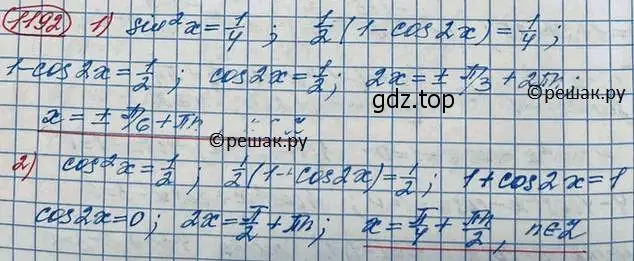 1192 1) sin²x = 1/4 ; 1/2 (1 - cos 2x) = 1/4 ;
1 - cos 2x = 1/2 ; cos 2x = 1/2 ; 2x = ± π/3 + 2πn ;
гдз.top
©решак.ру
x = ± π/6 + πn
©решак.ру
2) cos²x = 1/2 ; 1/2 (1 + cos 2x) = 1/2 ; 1 + cos 2x = 1
cos 2x = 0 ; 2x = π/2 + πn ; x = π/4 + πn/2 , n ∈ Z